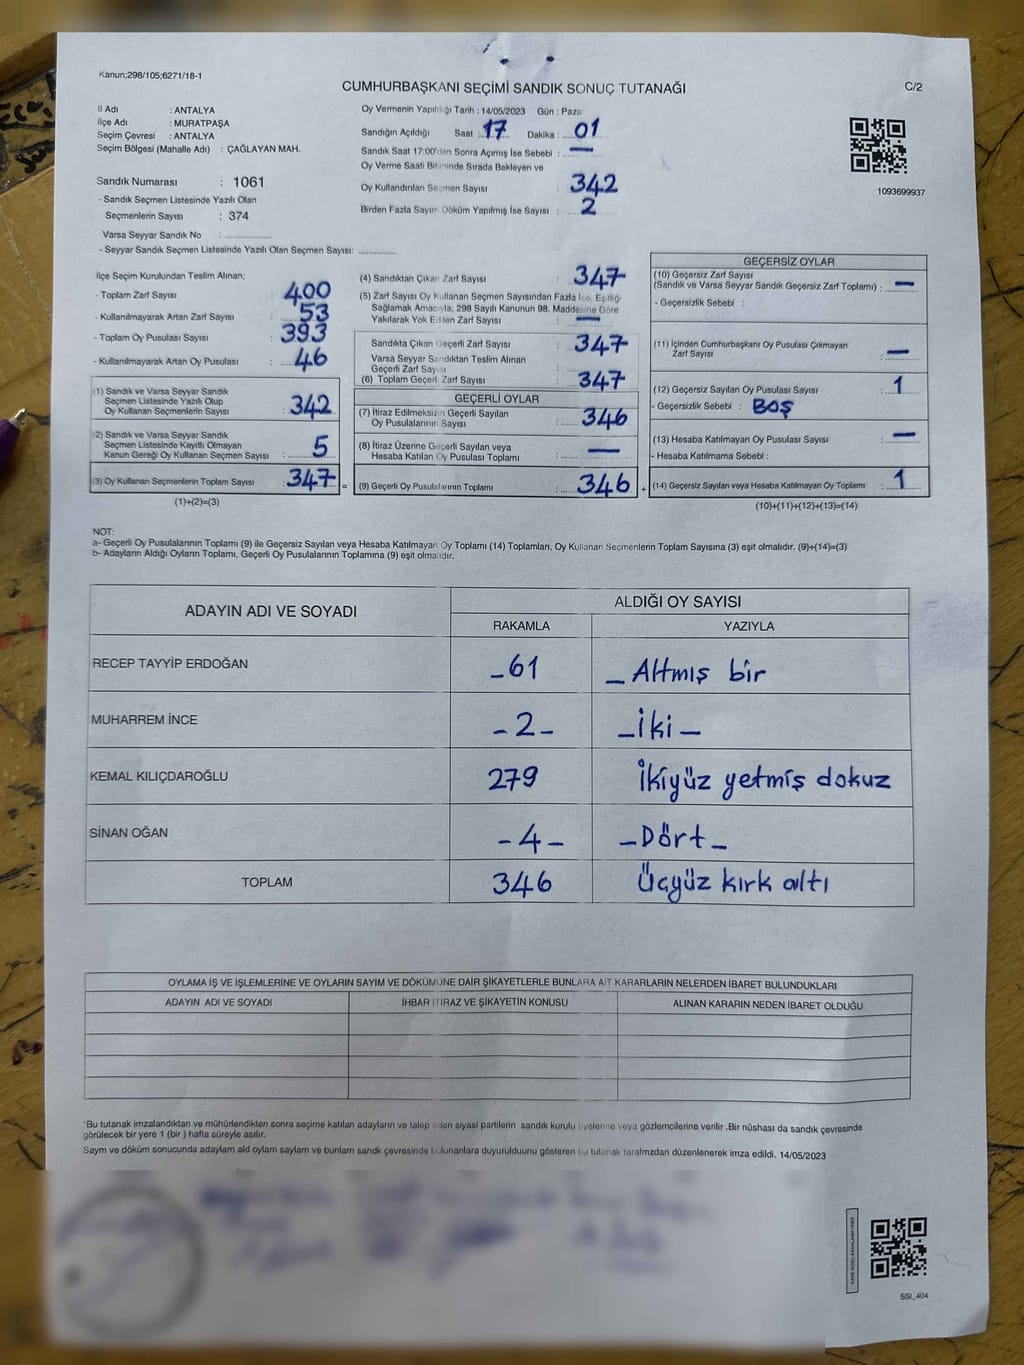 Kanun;298/105;6271/18-1
CUMHURBAŞKANI SEÇİMİ SANDIK SONUÇ TUTANAĞI
C/2
İl Adı : ANTALYA
İlçe Adı : MURATPAŞA
Seçim Çevresi : ANTALYA
Seçim Bölgesi (Mahalle Adı) : ÇAĞLAYAN MAH.
Sandık Numarası : 1061
- Sandık Seçmen Listesinde Yazılı Olan
Seçmenlerin Sayısı : 374
Varsa Seyyar Sandık No : ..............
- Seyyar Sandık Seçmen Listesinde Yazılı Olan Seçmen Sayısı: ............
Oy Vermenin Yapıldığı Tarih : 14/05/2023 Gün : Paza
Sandığın Açıldığı Saat : 17 Dakika : 01
Sandık Saat 17:00'den Sonra Açımış İse Sebebi : —
Oy Verme Saati Bitiminde Sırada Bekleyen ve
Oy Kullandırılan Seçmen Sayısı : 342
Birden Fazla Sayım Döküm Yapılmış İse Sayısı : 2
1093699937
İlçe Seçim Kurulundan Teslim Alınan;
- Toplam Zarf Sayısı : 400
- Kullanılmayarak Artan Zarf Sayısı : 53
- Toplam Oy Pusulası Sayısı : 393
- Kullanılmayarak Artan Oy Pusulası : 46
(1) Sandık ve Varsa Seyyar Sandık
Seçmen Listesinde Yazılı Olup
Oy Kullanan Seçmenlerin Sayısı : 342
(2) Sandık ve Varsa Seyyar Sandık
Seçmen Listesinde Kayıtlı Olmayan
Kanun Gereği Oy Kullanan Seçmen Sayısı : 5
(3) Oy Kullanan Seçmenlerin Toplam Sayısı : 347 =
(1)+(2)=(3)
(4) Sandıktan Çıkan Zarf Sayısı : 347
(5) Zarf Sayısı Oy Kullanan Seçmen Sayısından Fazla İse, Eşitliği
Sağlamak Amacıyla, 298 Sayılı Kanunun 98. Maddesine Göre
Yakılarak Yok Edilen Zarf Sayısı : —
Sandıkta Çıkan Geçerli Zarf Sayısı : 347
Varsa Seyyar Sandıktan Teslim Alınan
Geçerli Zarf Sayısı
(6) Toplam Geçerli Zarf Sayısı : 347
GEÇERLİ OYLAR
(7) İtiraz Edilmeksizin Geçerli Sayılan
Oy Pusulalarının Sayısı : 346
(8) İtiraz Üzerine Geçerli Sayılan veya
Hesaba Katılan Oy Pusulası Toplamı : —
(9) Geçerli Oy Pusulalarının Toplamı : 346 +
GEÇERSİZ OYLAR
(10) Geçersiz Zarf Sayısı
(Sandık ve Varsa Seyyar Sandık Geçersiz Zarf Toplamı) : —
- Geçersizlik Sebebi :
(11) İçinden Cumhurbaşkanı Oy Pusulası Çıkmayan
Zarf Sayısı : —
(12) Geçersiz Sayılan Oy Pusulası Sayısı : 1
- Geçersizlik Sebebi : BOŞ
(13) Hesaba Katılmayan Oy Pusulası Sayısı : —
- Hesaba Katılmama Sebebi :
(14) Geçersiz Sayılan veya Hesaba Katılmayan Oy Toplamı : 1
(10)+(11)+(12)+(13)=(14)
NOT:
a- Geçerli Oy Pusulalarının Toplamı (9) ile Geçersiz Sayılan veya Hesaba Katılmayan Oy Toplamı (14) Toplamları, Oy Kullanan Seçmenlerin Toplam Sayısına (3) eşit olmalıdır. (9)+(14)=(3)
b- Adayların Aldığı Oyların Toplamı, Geçerli Oy Pusulalarının Toplamına (9) eşit olmalıdır.
ADAYIN ADI VE SOYADI
ALDIĞI OY SAYISI
RAKAMLA YAZIYLA
RECEP TAYYİP ERDOĞAN –61 – Altmış bir
MUHARREM İNCE –2– –İki–
KEMAL KILIÇDAROĞLU 279 İkiyüz yetmiş dokuz
SİNAN OĞAN –4– –Dört–
TOPLAM 346 Üçyüz kırk altı
OYLAMA İŞ VE İŞLEMLERİNE VE OYLARIN SAYIM VE DÖKÜMÜNE DAİR ŞİKAYETLERLE BUNLARA AİT KARARLARIN NELERDEN İBARET BULUNDUKLARI
ADAYIN ADI VE SOYADI İHBAR İTİRAZ VE ŞİKAYETİN KONUSU ALINAN KARARIN NEDEN İBARET OLDUĞU
*Bu tutanak imzalandıktan ve mühürlendikten sonra seçime katılan adayların ve talep eden siyasi partilerin sandık kurulu üyelerine veya gözlemcilerine verilir .Bir nüshası da sandık çevresinde
görülecek bir yere 1 (bir ) hafta süreyle asılır.
Sayım ve döküm sonucunda adayların aldığı oyların sayıları ve bunların sandık çevresinde bulunanlara duyurulduğunu gösteren bu tutanak tarafımızdan düzenlenerek imza edildi. 14/05/2023
SSI_404